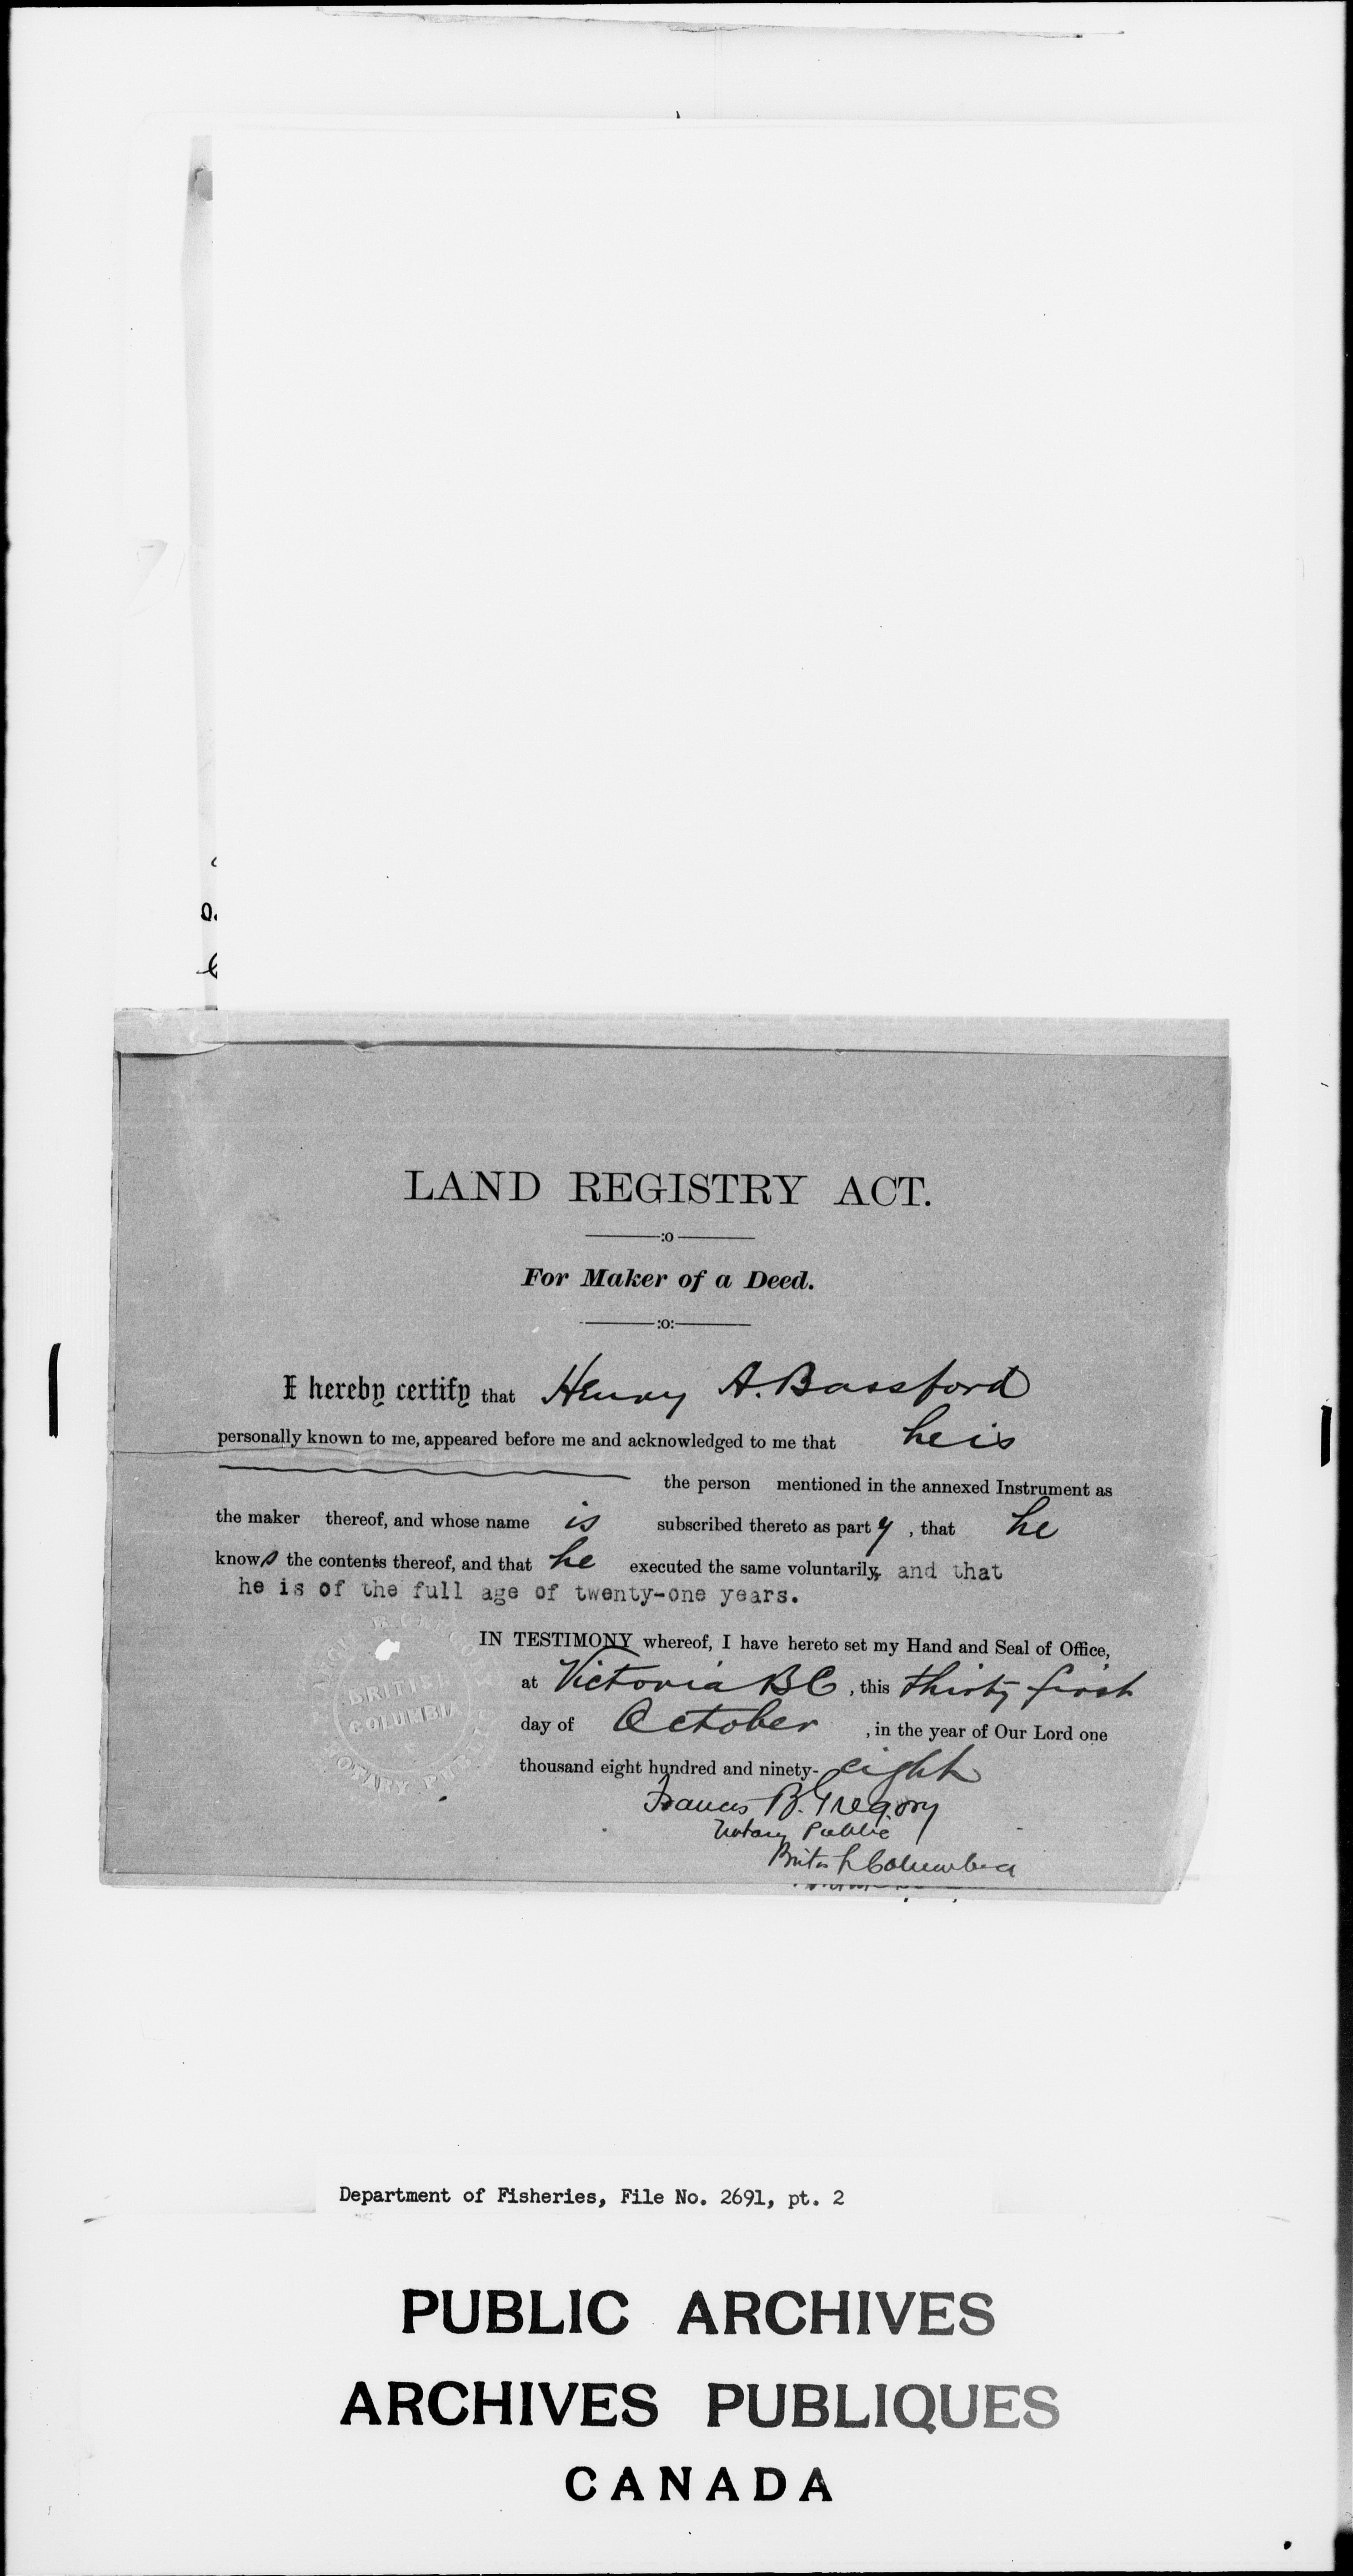 LAND REGISTRY ACT.
:o
For Maker of a Deed.
:o:
I hereby certify that Henry A. Bassford
personally known to me, appeared before me and acknowledged to me that he is
the person mentioned in the annexed Instrument as
the maker thereof, and whose name is subscribed thereto as party, that he
knows the contents thereof, and that he executed the same voluntarily, and that
he is of the full age of twenty-one years.
IN TESTIMONY whereof, I have hereto set my Hand and Seal of Office,
at Victoria BC, this thirty first
day of October, in the year of Our Lord one
thousand eight hundred and ninety-eight
Francis B. Gregory
Notary Public
British Columbia
BRITISH
COLUMBIA
NOTARY PUBLIC
Department of Fisheries, File No. 2691, pt. 2
PUBLIC ARCHIVES
ARCHIVES PUBLIQUES
CANADA